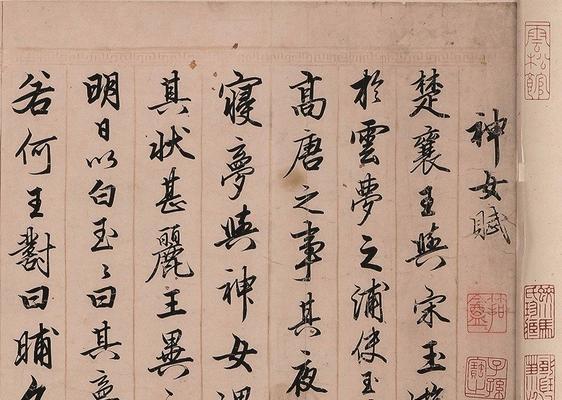 雲松館
神女賦
楚襄王與宋玉
於雲夢之浦使玉
高唐之事其夜
寢夢與神女
其狀甚麗王異
明日以白玉々曰其夢
若何王對曰晡